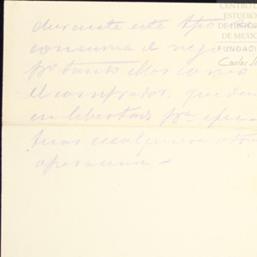 durante este tpo no se
consuma el nego
pr tanto Uds como
el comprador, quedan
en libertad pa efec
tuar cualquiera otra
operación -
CENTRO DE
ESTUDIOS
DE HISTORIA
DE MEXICO
FUNDACIÓN
Carlos Sl